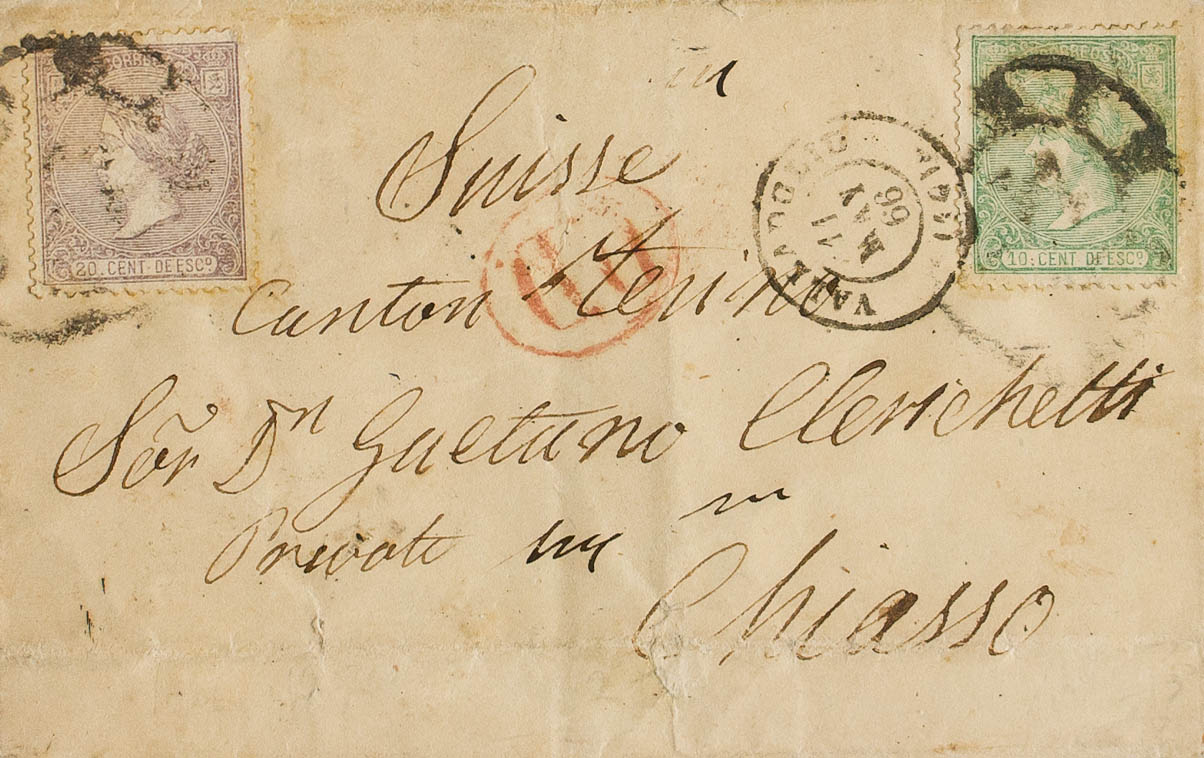 CORREOS
20. CENT. DE ESCO.
CORREOS
10. CENT. DE ESCO.
VALLADOLID
11
MAY
66
PD
in
Suisse
Canton Tesino
Sõr Dn Gaetano Clerichetti
in
Chiasso